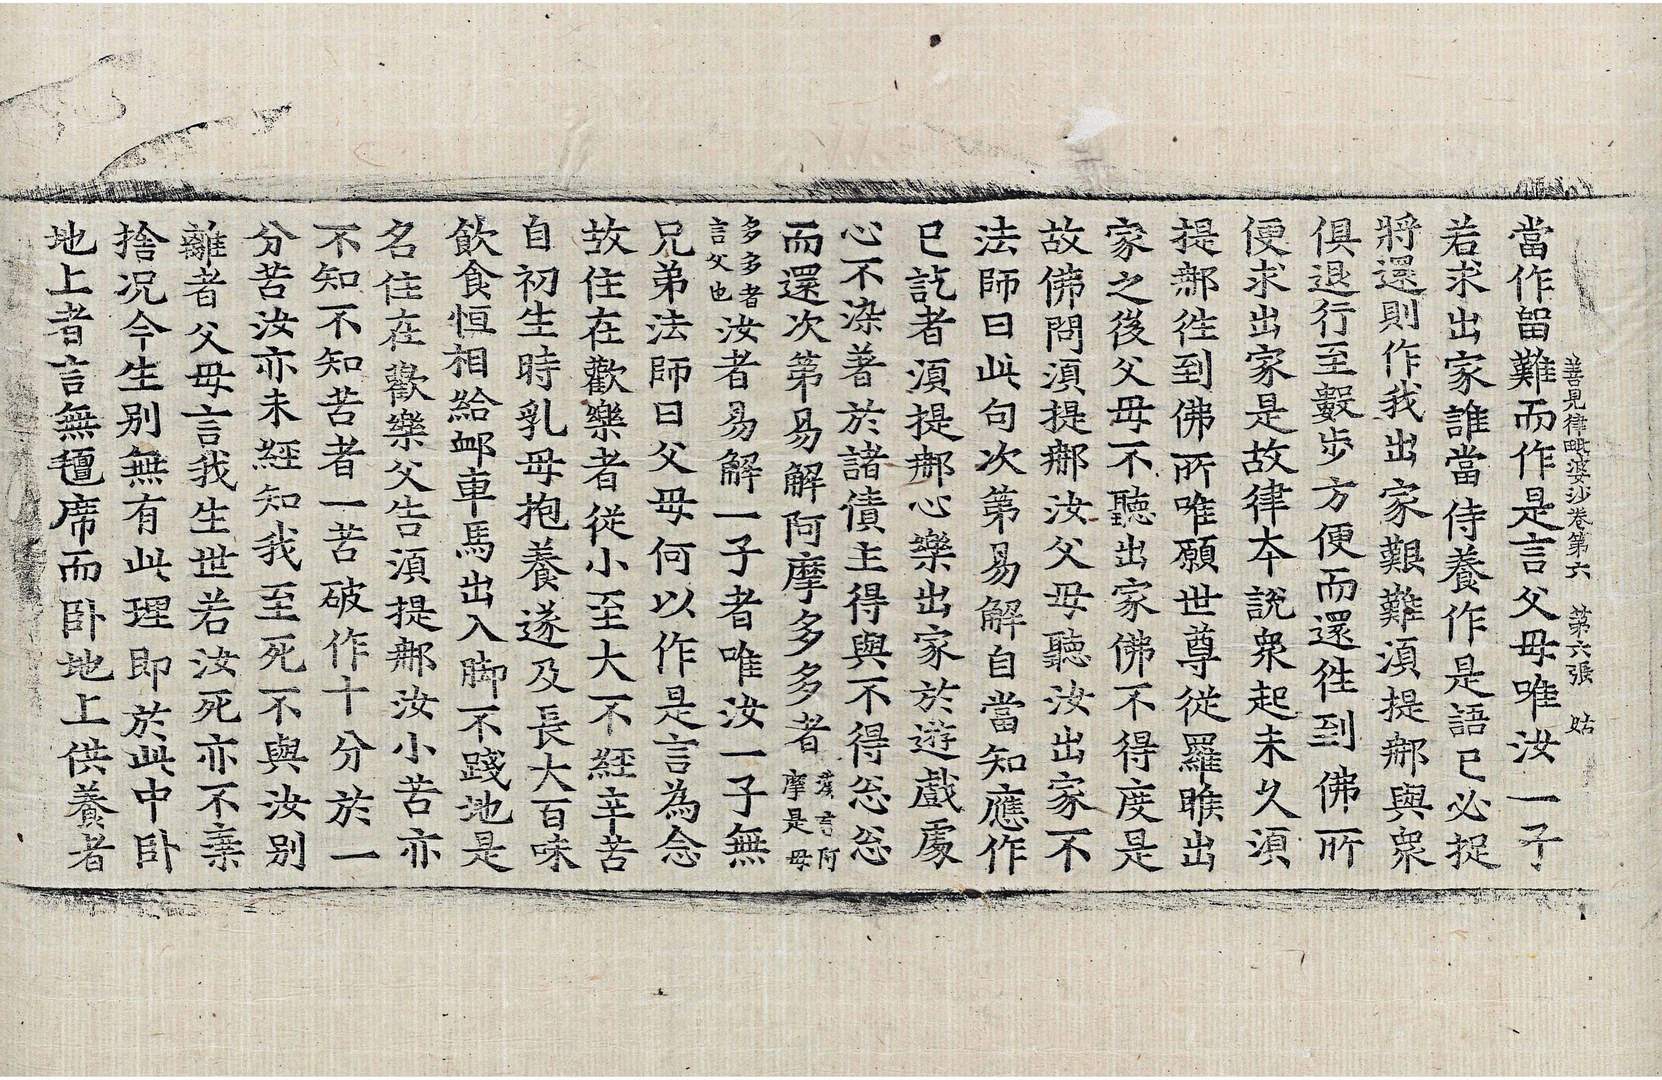 善見律毗婆沙卷第六　第六張　姑
當作畱難而作是言父母唯汝一子
若求出家誰當侍養作是語已必捉
將還則作我出家艱難湏提𨚗與衆
俱退行至數步方便而還徃到佛所
便求出家是故律本說衆起未久湏
提𨚗徃到佛所唯願世尊從羅睺出
家之後父母不聽出家佛不得度是
故佛問湏提𨚗汝父母聽汝出家不
法師曰此句次第易解自當知應作
已訖者湏提𨚗心樂出家於遊戲處
心不染著於諸債主得與不得忩忩
而還次第易解阿摩多多者漢言阿摩是母
多多者言父也汝者易解一子者唯汝一子無
兄弟法師曰父母何以作是言為念
故住在歡樂者從小至大不經辛苦
自初生時乳母抱養遂及長大百味
飲食恒相給䘏車馬出入脚不踐地是
名住在歡樂父告湏提𨚗汝小苦亦
不知不知苦者一苦破作十分於一
分苦汝亦未經知我至死不與汝別
離者父母言我生世若汝死亦不棄
捨况今生别無有此理即於此中卧
地上者言無氊席而卧地上供養者